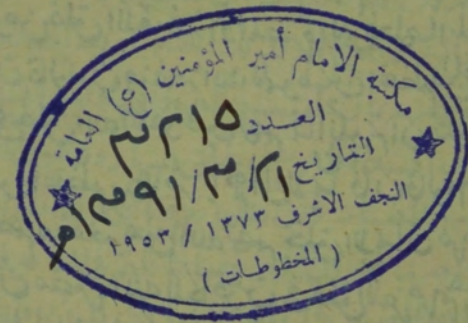 مكتبة الامام أمير المؤمنين (ع) العامة
العـــدد ٣٢١٥
التاريخ ٢١/٣/١٣٩١م
النجف الاشرف ١٣٧٣ / ١٩٥٣
( المخطوطـات )